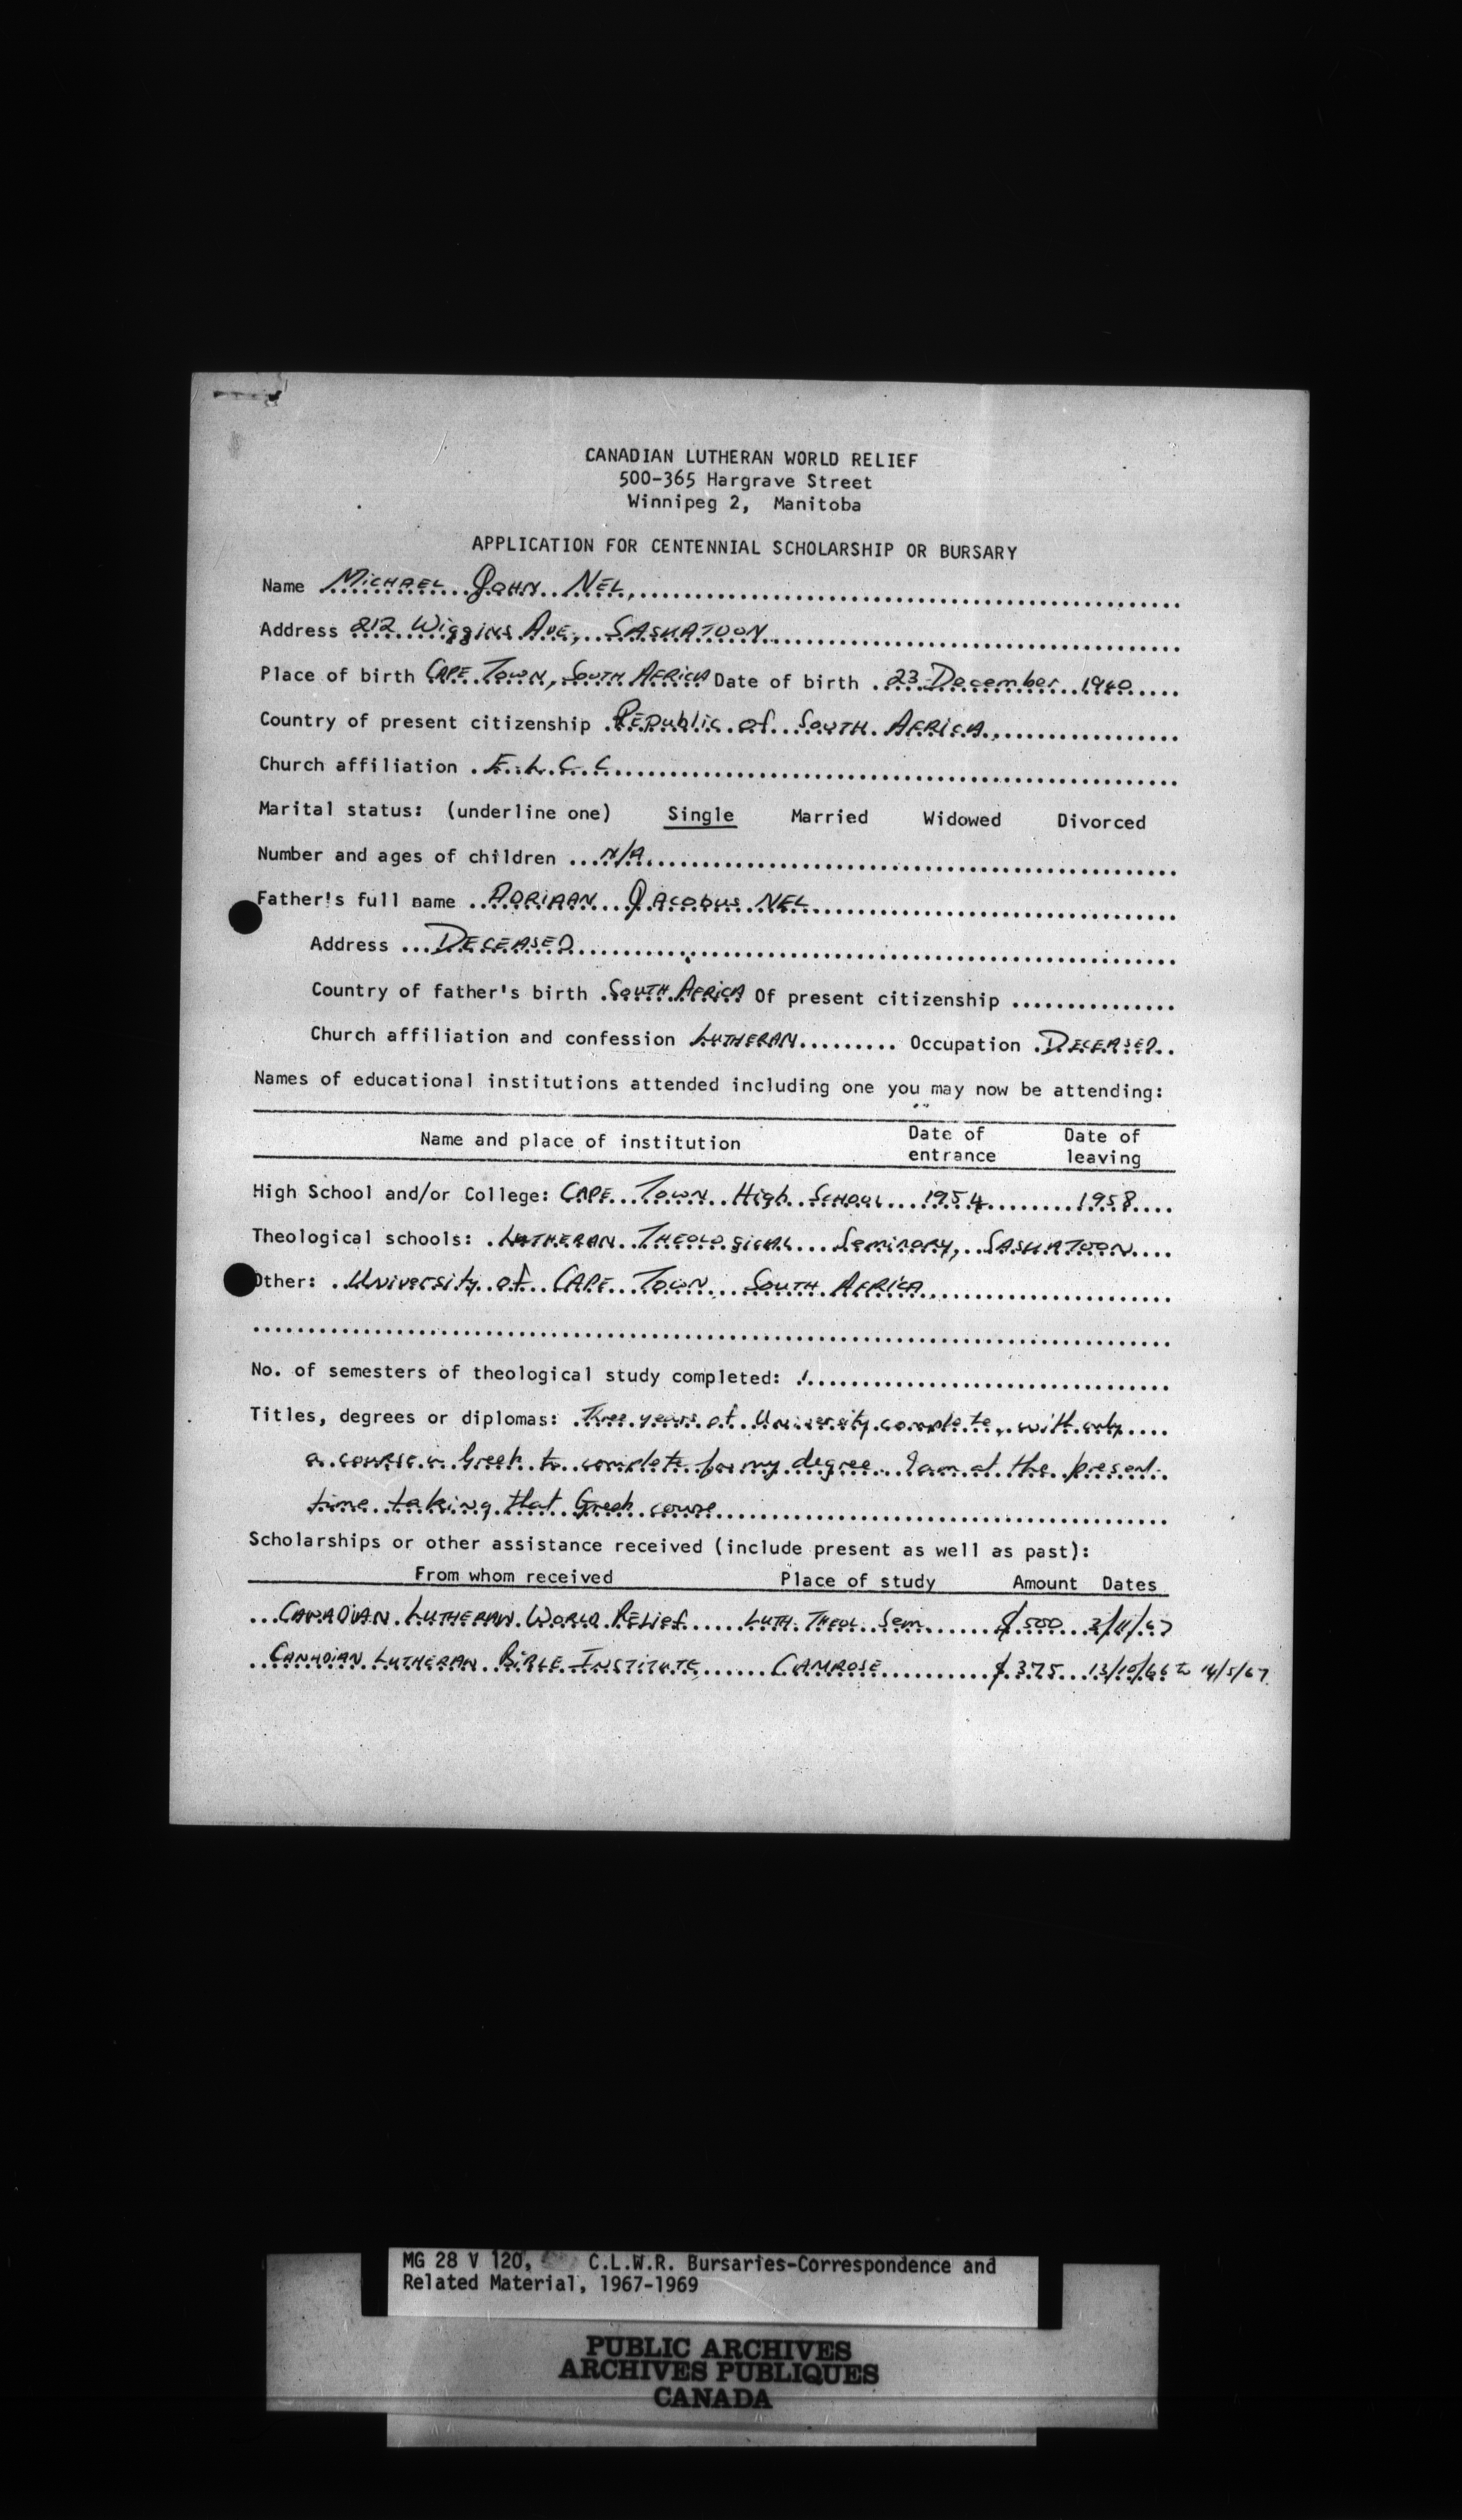 CANADIAN LUTHERAN WORLD RELIEF
500-365 Hargrave Street
Winnipeg 2, Manitoba
APPLICATION FOR CENTENNIAL SCHOLARSHIP OR BURSARY
Name MICHAEL JOHN NEL,
Address 212 Wiggins Ave, SASKATOON
Place of birth CAPE TOWN, SOUTH AFRICA Date of birth 23 December 1940
Country of present citizenship Republic of SOUTH AFRICA.
Church affiliation E.L.C.C
Marital status: (underline one) Single Married Widowed Divorced
Number and ages of children N/A
Father's full name ADRIAAN JACOBUS NEL
Address DECEASED
Country of father's birth SOUTH AFRICA Of present citizenship
Church affiliation and confession LUTHERAN Occupation DECEASED
Names of educational institutions attended including one you may now be attending:
Name and place of institution Date of entrance Date of leaving
High School and/or College: CAPE TOWN High SCHOOL 1954 1958
Theological schools: LUTHERAN THEOLOGICAL Seminary, SASKATOON
Other: University of CAPE TOWN SOUTH AFRICA
No. of semesters of theological study completed: 1
Titles, degrees or diplomas: Three years of University complete, with only
a course in Greek to complete for my degree. I am at the present
time taking that Greek course
Scholarships or other assistance received (include present as well as past):
From whom received Place of study Amount Dates
CANADIAN LUTHERAN WORLD RELIEF LUTH. THEOL. Sem. $500 2/11/67
CANADIAN LUTHERAN BIBLE INSTITUTE CAMROSE $375 13/10/66 to 14/5/67
MG 28 V 120, C.L.W.R. Bursaries-Correspondence and
Related Material, 1967-1969
PUBLIC ARCHIVES
ARCHIVES PUBLIQUES
CANADA